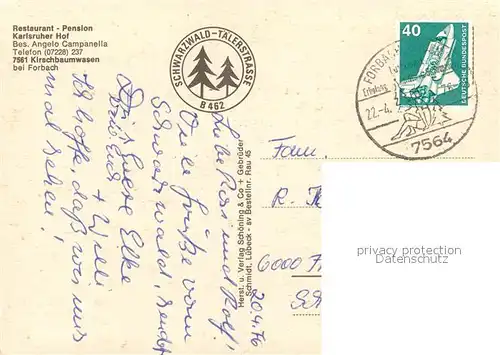 Restaurant - Pension
Karlsruher Hof
Bes. Angelo Campanella
Telefon (07228) 237
7561 Kirschbaumwasen
bei Forbach
SCHWARZWALD-TÄLERSTRASSE
B 462
40
DEUTSCHE BUNDESPOST
FORBACH
22.-4.
7564
Herst. u. Verlag Schöning & Co + Gebrüder
Schmidt, Lübeck - av Bestellnr. Rau 45
20.4.76
Liebe Rosi und Rolf!
Viele Grüße vom
Schwarzwald, sendet
Euch Eure Elke
+ Willi
Ich hoffe, daß wir uns
mal sehen!
Fam.
R.
6000
privacy protection
Datenschutz